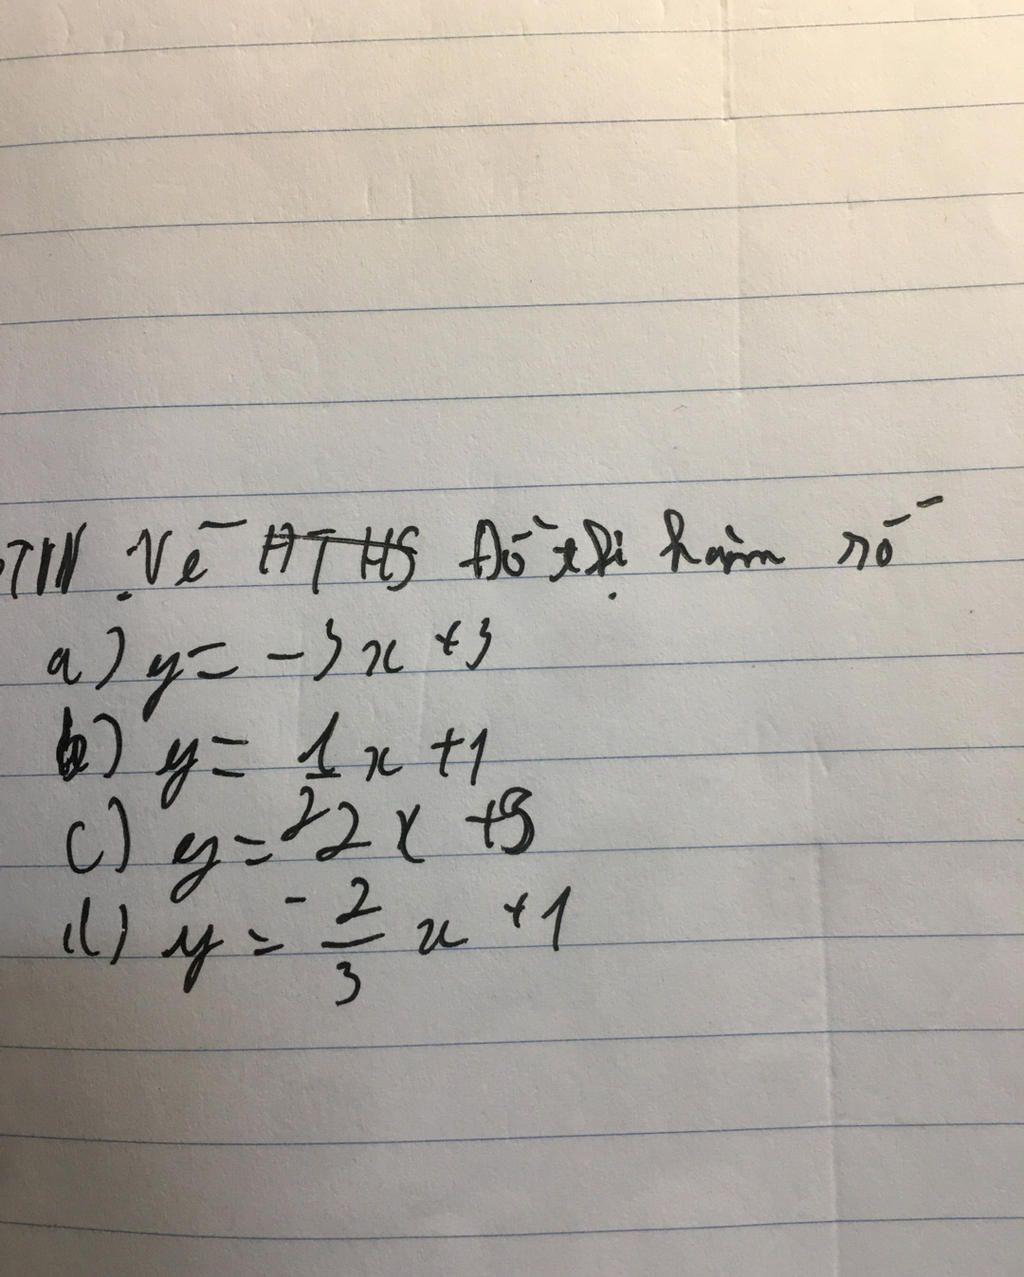 Vẽ ĐTHS Đồ thị hàm số
a) y = -3x + 3
b) y = 1/2 x + 1
c) y = 2x + 3
d) y = -2/3 x + 1